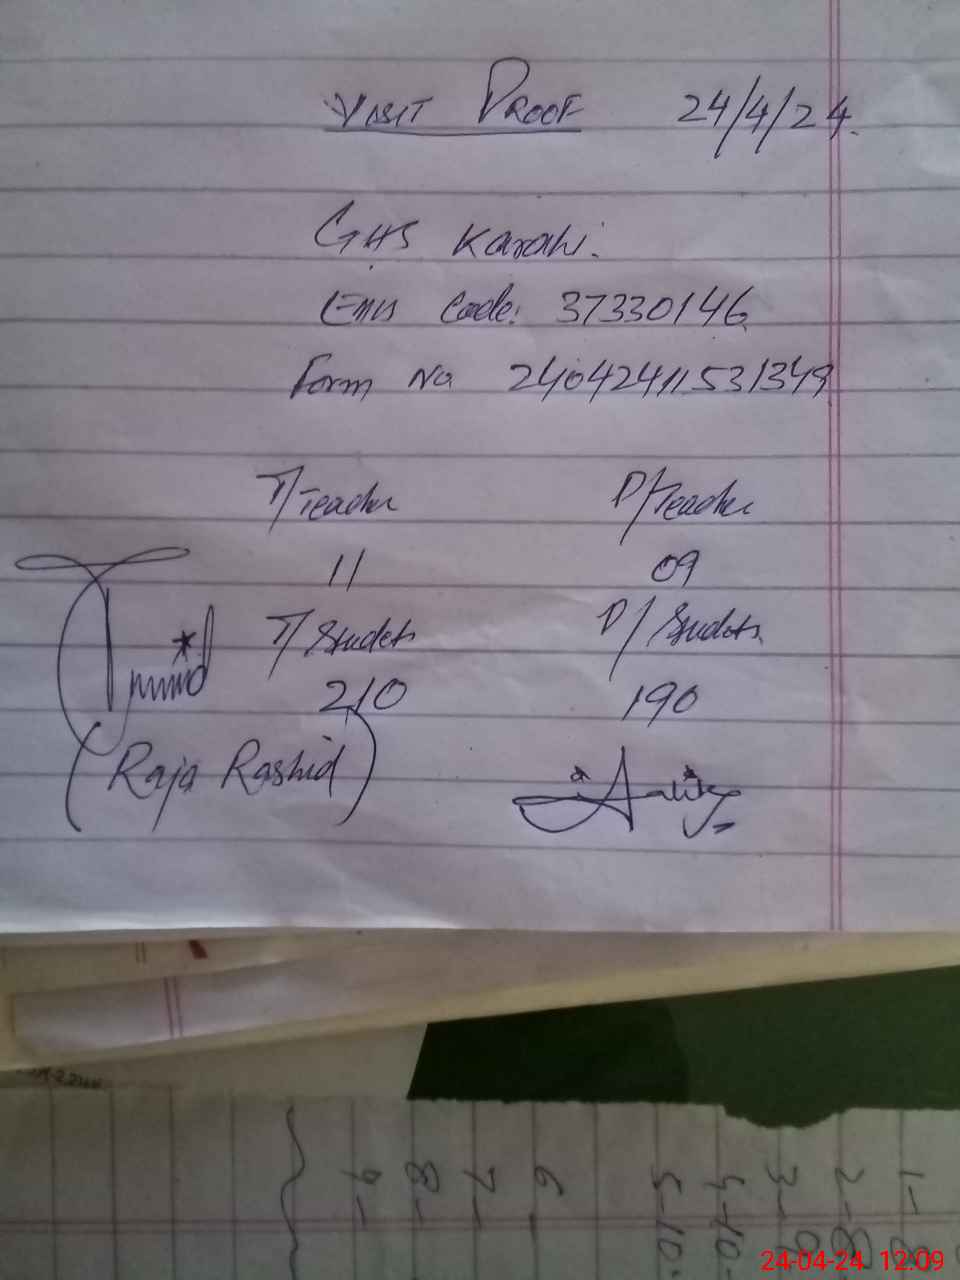 VISIT PROOF 24/4/24.
GHS Karahi.
Emis Code: 37330146
Form No 24042411531349
T/Teacher P/Teacher
11 09
T/Students P/Students
210 190
(Raja Rashid)
1-8
2-8
3-9
4-10
5-10
6
7-
8-
9-
24-04-24 12:09